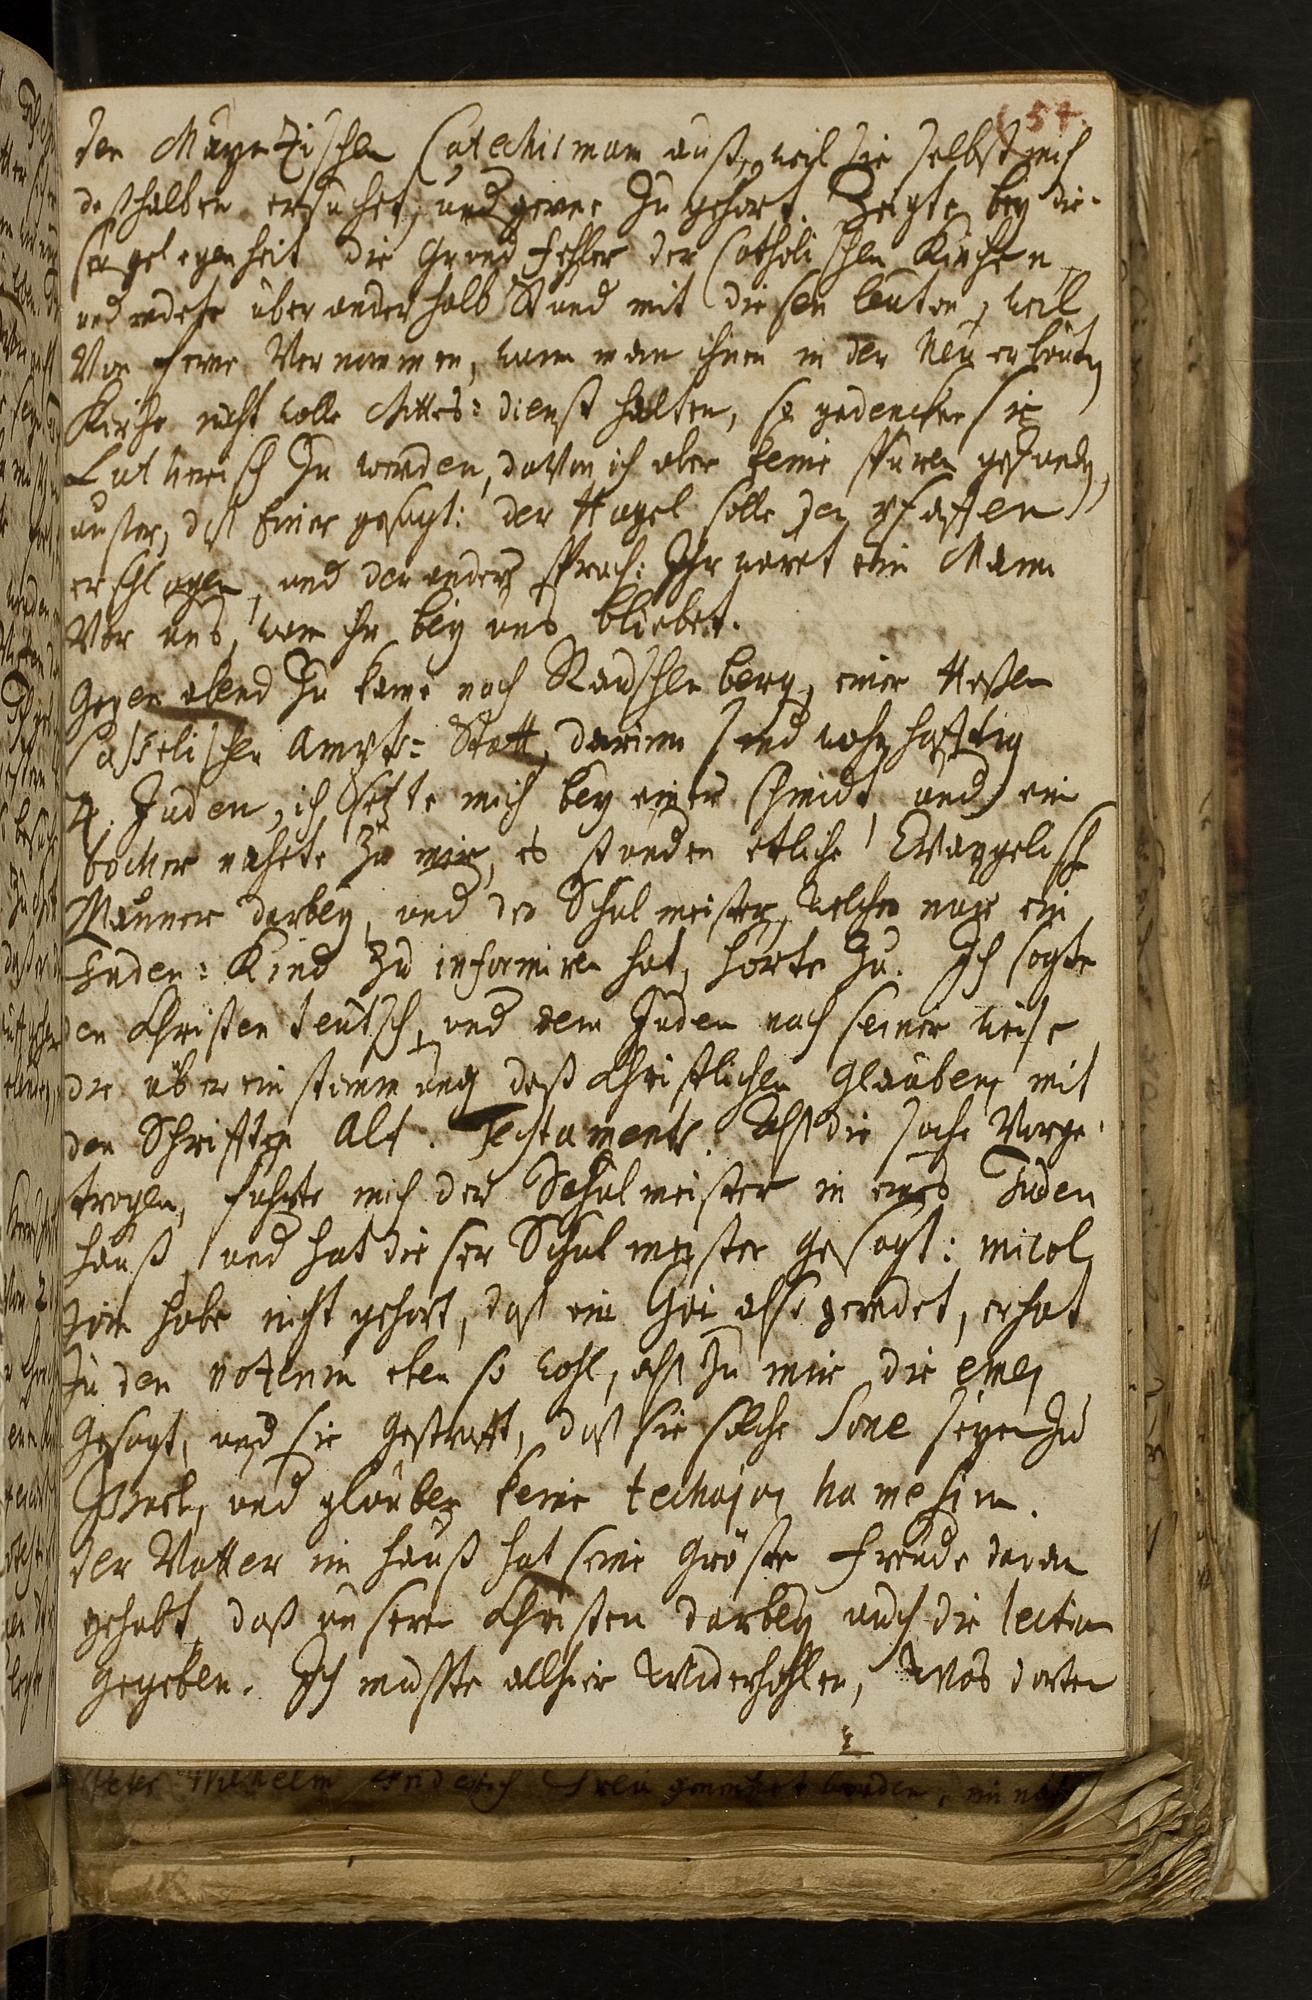 154.
den Mäyntzischen Catechismum auß, weil sie selbst mich
deßhalben ersuchet, und gerne zu gehört. Zeigte bey die-
ser gelegenheit die Grund fehler der Catholischen Kirchen,
und redete über anderhalb Stund mit diesen leuten, weil
Von ferne Vernommen, wann man ihnen in der Neu erbauten
Kirche nicht wolle Gottes: dienst halten, so gedencken sie
Lutherisch zu werden, davon ich aber keine spuren gefunden,
ausser, daß Einer gesagt: der Hagel solle den pfaffen
erschlagen, und der ander sprach: Ihr waret ein Mann
Vor uns, wan ihr bey uns bliebet.
Gegen abend zu kame nach Rauschenberg, einer Heßen
Casselischen Ampts= Statt, darinn sind wohnhafftig
4. Juden, ich setzte mich bey einer schmidt und ein
bocher nahete zu mir, es stunden etliche Evangelische
Männer darbey, und der Schulmeister, welcher nur ein
Juden: Kind zu informiren hat, hörte zu. Ich sagte
den Christen teutsch, und dem Juden nach seiner weise
die übereinstimmung deß Christlichen glaubens mit
den Schrifften Alt. Testaments. Alß die sache Vorge-
tragen, führte mich der Schulmeister in eines Juden
hauß, und hat dieser Schulmeister gesagt: micol
jom habe nicht gehört, daß ein Goi also geredet, er hat
zu den nozerim eben so wohl, alß zu mir die emes
gesagt, und sie gestrafft, daß sie solche Sone seyen zu
Jisrael, und glauben keine techajas hamesim.
der Vatter im hauß hat seine gröste freude daran
gehabt, daß unseren Christen darbey auch die lection
gegeben. Ich musste allhier widerhohlen, was dorten